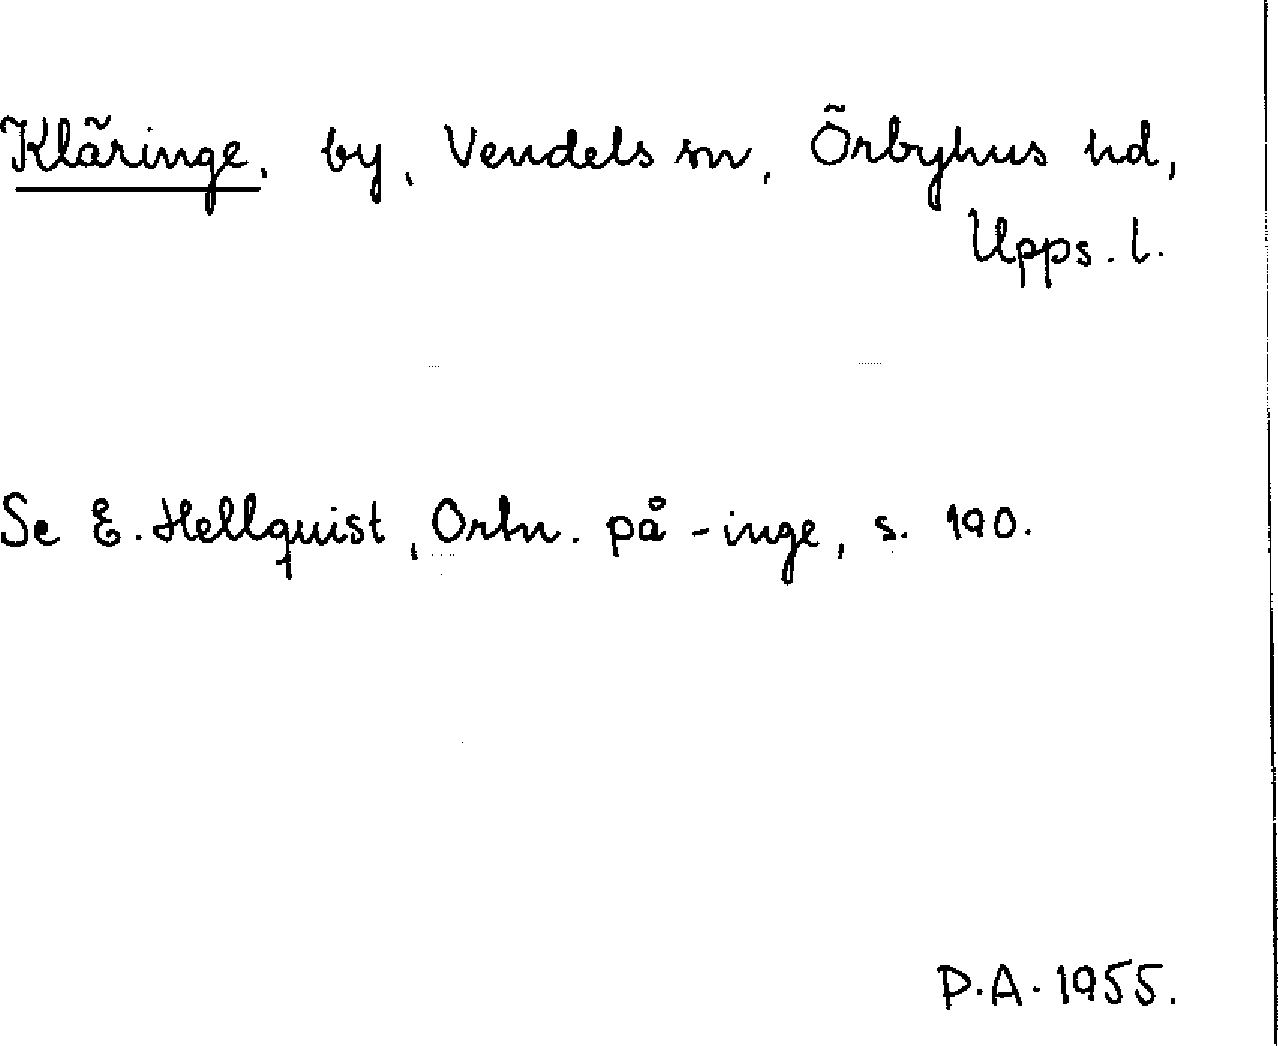 Kläringe, by, Vendels sn, Örbyhus hd,
Upps. l.
Se E. Hellquist, Ortn. på -inge, s. 190.
P.A. 1955.